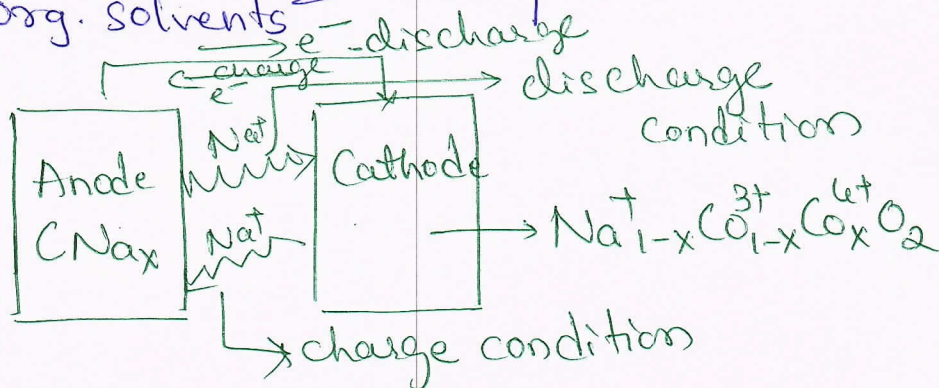 org. solvents
→ e⁻-discharge
charge
e⁻
→ discharge
condition
Na⁺
Anode
CNaₓ
Cathode
Na⁺
→ Na⁺₁₋ₓCo³⁺₁₋ₓCo⁴⁺ₓO₂
→ charge condition